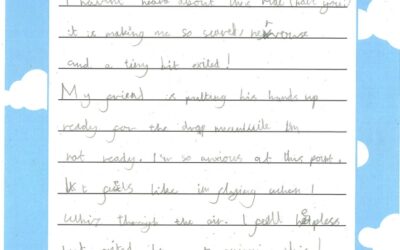 I havent heard about this ride have you?
it is making me so scared, nervous
and a tiny bit exited!
My friend is putting his hands up
ready for the drop meanwhile I'm
not ready. I'm so anxious at this point,
It feels like im flying when I
whiz through the air. I feel helpless